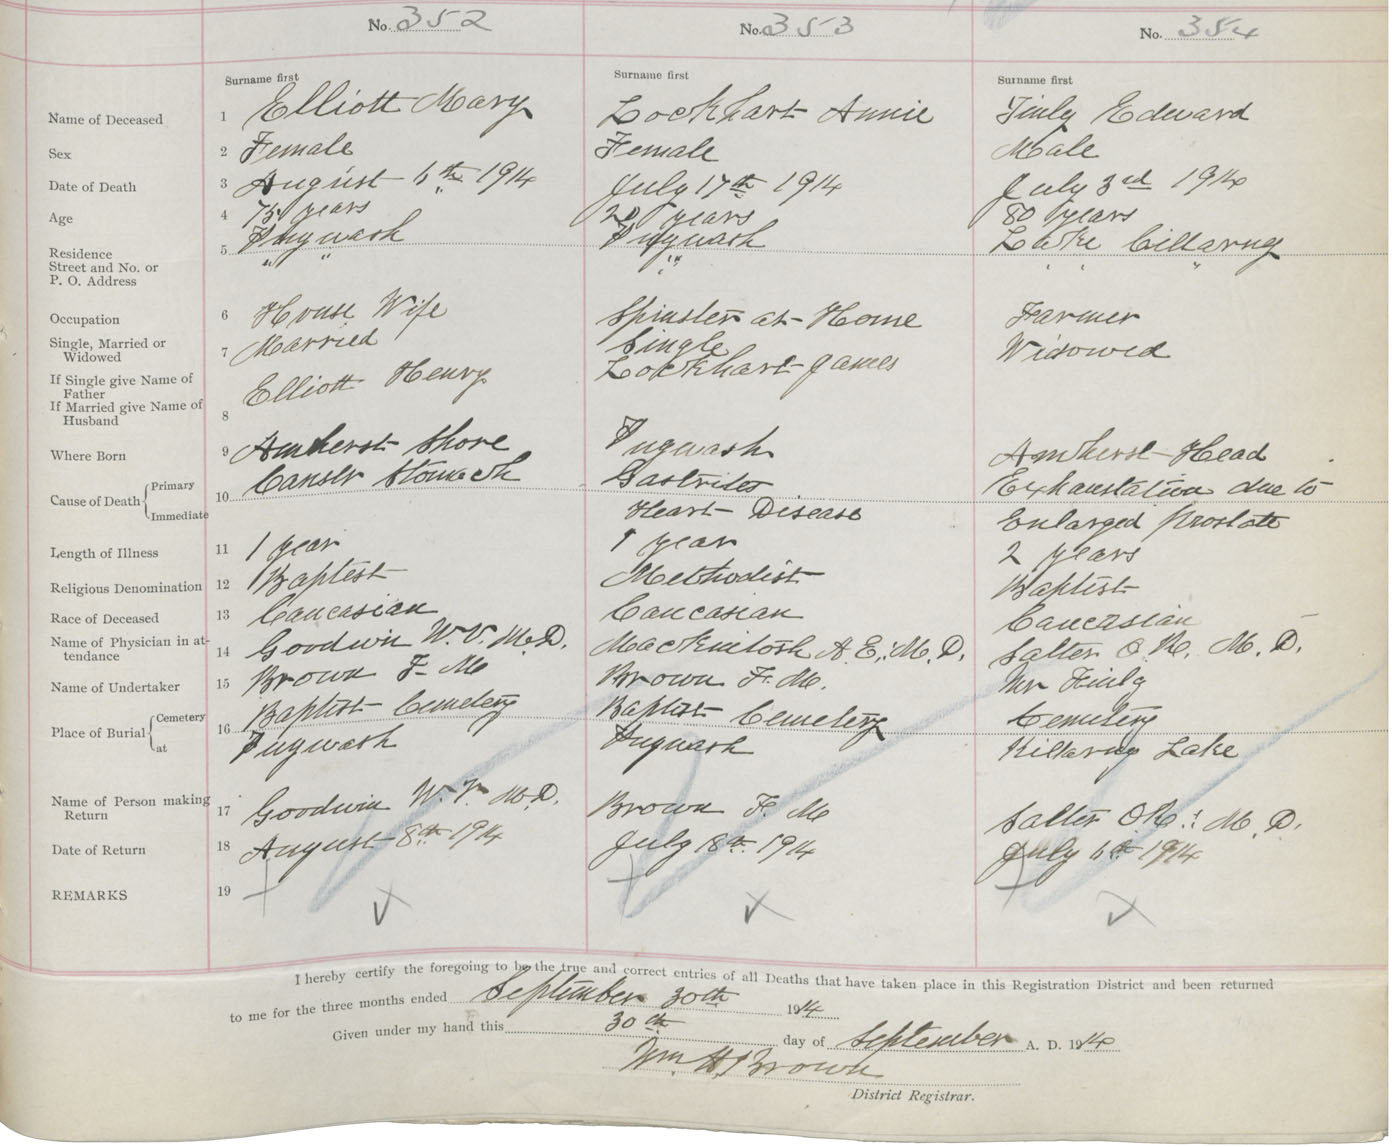 No. 352 No. 353 No. 354
Surname first Surname first Surname first
Name of Deceased 1 Elliott Mary Lockhart Annie Finly Edward
Sex 2 Female Female Male
Date of Death 3 August 6th 1914 July 17th 1914 July 3rd 1914
Age 4 75 years 20 years 80 years
Residence Street and No. or P. O. Address 5 Pugwash Pugwash Lake Cillarny
" " " " " " "
Occupation 6 House Wife Spinster at Home Farmer
Single, Married or Widowed 7 Married Single Widowed
If Single give Name of Father If Married give Name of Husband 8 Elliott Henry Lockhart James
Where Born 9 Amherst Shore Pugwash Amherst Head
Cause of Death Primary 10 Canser Stomach Gastrites Exhaustation due to
Immediate Heart Disease Enlarged Prostate
Length of Illness 11 1 year 1 year 2 years
Religious Denomination 12 Baptest Methodist Baptist
Race of Deceased 13 Caucasian Caucasian Caucasian
Name of Physician in attendance 14 Goodwin W. V. M.D. Mackintosh A. E. M. D. Salter M. D.
Name of Undertaker 15 Brown F. M Brown F. M. Mr Finly
Place of Burial Cemetery 16 Baptist Cemetery Baptist Cemetery Cemetery
at Pugwash Pugwash Killarny Lake
Name of Person making Return 17 Goodwin W. V. M.D. Brown F. M Salter M. D.
Date of Return 18 August 8th 1914 July 18th 1914 July 6th 1914
REMARKS 19
I hereby certify the foregoing to be the true and correct entries of all Deaths that have taken place in this Registration District and been returned
to me for the three months ended September 30th 1914
Given under my hand this 30th day of September A. D. 1914
Wm. H. Brown
District Registrar.